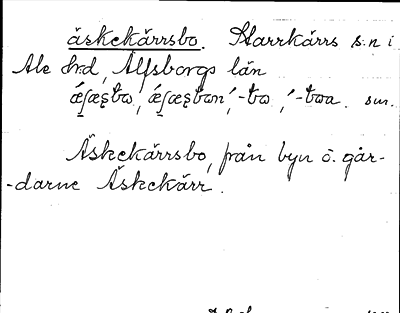 äskekärrsbo. Starrkärrs s:n i
Ale hd, Älfsborgs län
sm.
Äskekärrsbo, från byn o. går-
-darne Äskekärr.